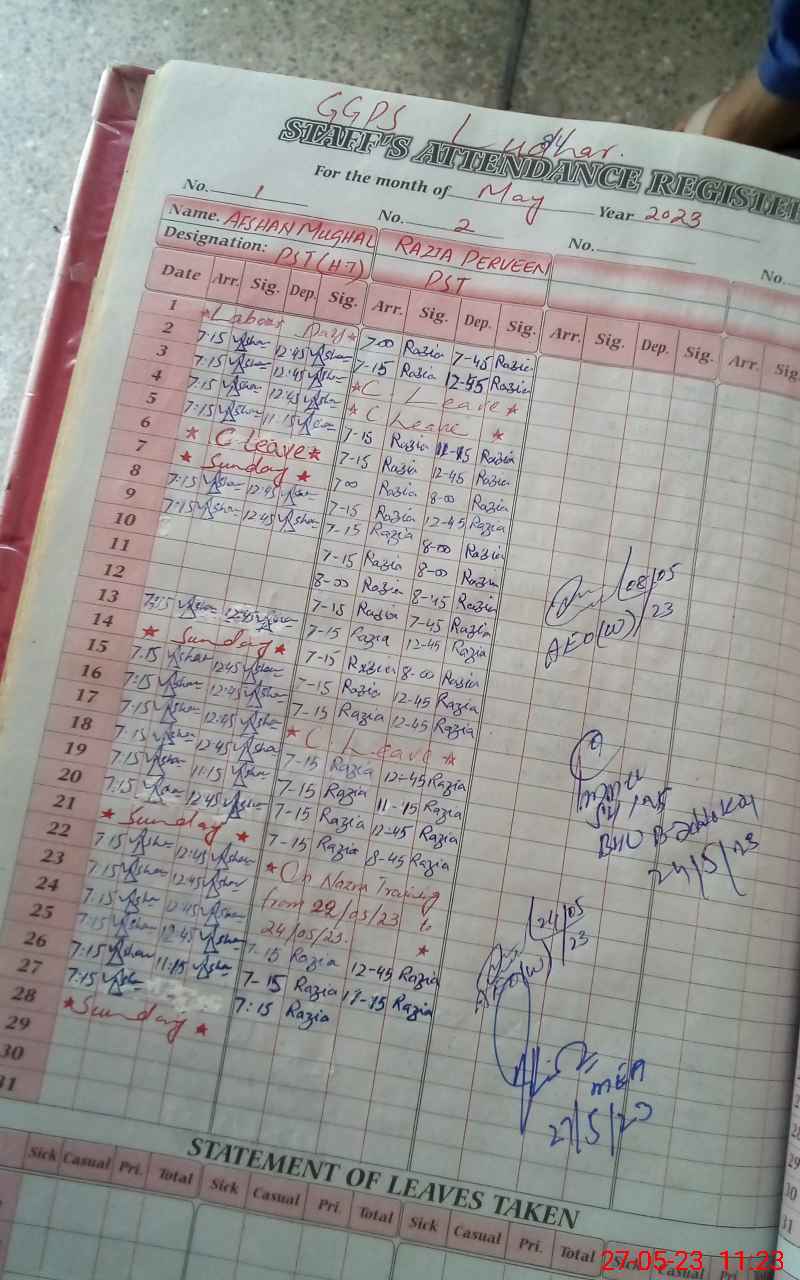 GGPS Ludhar.
STAFF'S ATTENDANCE REGISTER
For the month of May Year 2023
No. 1 No. 2 No. No.
Name. AFSHAN MUGHAL RAZIA PERVEEN
Designation: PST (H.T) PST
Date Arr. Sig. Dep. Sig. Arr. Sig. Dep. Sig. Arr. Sig. Dep. Sig. Arr. Sig.
1 *Labour Day*
2 7:15 Afshan 12:45 Afshan 7-00 Razia 7-45 Razia
3 7:15 Afshan 12:45 Afshan 7-15 Razia 12-45 Razia
4 7:15 Afshan 12:45 Afshan *C. Leave*
5 7:15 Afshan 11:15 Afshan *C Leave *
6 * C Leave* 7-15 Razia Razia
7 * Sunday * 7-15 Razia 12-45 Razia
8 7:15 Afshan 12:45 Afshan 7-00 Razia 8-00 Razia
9 7:15 Afshan 12:45 Afshan 7-15 Razia 12-45 Razia
10 7-15 Razia 8-00 Razia
11 7-15 Razia 8-00 Razia
12 8-00 Razia 8-45 Razia
13 7:15 Afshan 12:45 Afshan 7-15 Razia 7-45 Razia
14 * Sunday * 7-15 Razia 12-45 Razia
15 7:15 Afshan 12:45 Afshan 7-15 Razia 8-00 Razia
16 7:15 Afshan 12:45 Afshan 7-15 Razia 12-45 Razia
17 7:15 Afshan 12:45 Afshan 7-15 Razia 12-45 Razia
18 7:15 Afshan 12:45 Afshan * C. Leave *
19 7:15 Afshan 11:15 Afshan 7-15 Razia 12-45 Razia
20 7:15 Afshan 12:45 Afshan 7-15 Razia 11-15 Razia
21 * Sunday * 7-15 Razia 12-45 Razia
22 7:15 Afshan 12:45 Afshan 7-15 Razia 8-45 Razia
23 7:15 Afshan 12:45 Afshan *On Nazra Training
24 7:15 Afshan 12:45 Afshan from 22/05/23 to
25 7:15 Afshan 12:45 Afshan 24/05/23. *
26 7:15 Afshan 11:15 Afshan 7-15 Razia 12-45 Razia
27 7:15 Afshan 7-15 Razia 11-15 Razia
28 *Sunday * 7:15 Razia
29
30
31
08/05
23
AEO(W)
BHU
24/5/23
24/05
23
AEO(W)
MEA
27/5/23
STATEMENT OF LEAVES TAKEN
Sick Casual Pri. Total Sick Casual Pri. Total Sick Casual Pri. Total Sick Casual Pri.
29
30
31
27-05-23 11:23